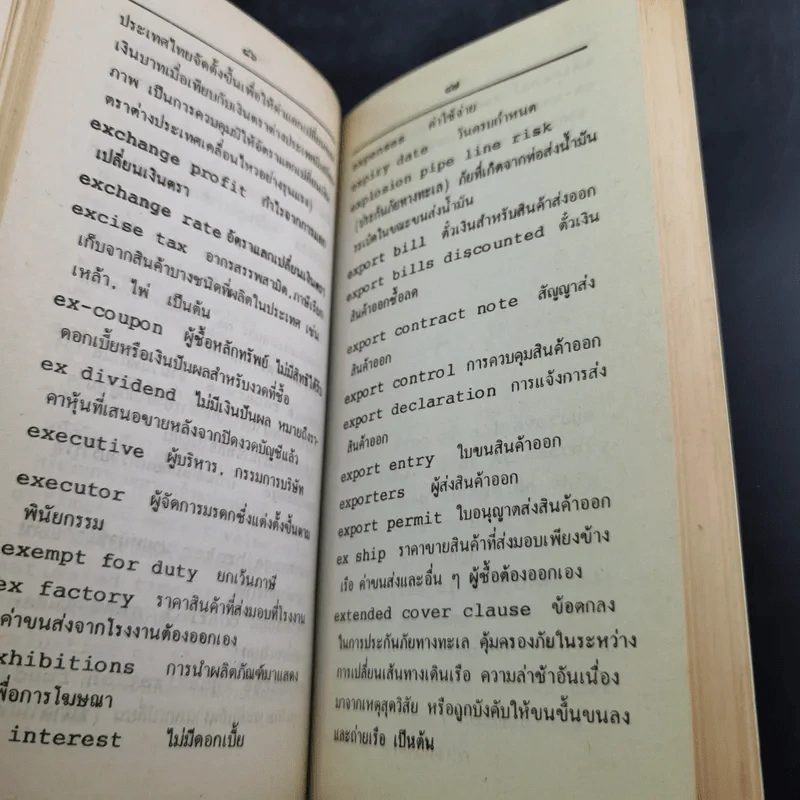 ๘๖
ประเทศไทยจัดตั้งขึ้นเพื่อให้ค่าแลกเปลี่ยน
เงินบาทเมื่อเทียบกับเงินตราต่างประเทศมี
ภาพ เป็นการควบคุมมิให้อัตราแลกเปลี่ยน
ตราต่างประเทศเคลื่อนไหวอย่างรุนแรง)
exchange profit กำไรจากการแลก
เปลี่ยนเงินตรา
exchange rate อัตราแลกเปลี่ยนเงินตรา
excise tax อากรสรรพสามิต, ภาษีเรียก
เก็บจากสินค้าบางชนิดที่ผลิตในประเทศ เช่น
เหล้า, ไพ่ เป็นต้น
ex-coupon ผู้ซื้อหลักทรัพย์ ไม่มีสิทธิได้รับ
ดอกเบี้ยหรือเงินปันผลสำหรับงวดที่ซื้อ
ex dividend ไม่มีเงินปันผล หมายถึงรา-
คาหุ้นที่เสนอขายหลังจากปิดงวดบัญชีแล้ว
executive ผู้บริหาร, กรรมการบริษัท
executor ผู้จัดการมรดกซึ่งแต่งตั้งขึ้นตาม
พินัยกรรม
exempt for duty ยกเว้นภาษี
ex factory ราคาสินค้าที่ส่งมอบที่โรงงาน
ค่าขนส่งจากโรงงานต้องออกเอง
xhibitions การนำผลิตภัณฑ์มาแสดง
พื่อการโฆษณา
interest ไม่มีดอกเบี้ย
๘๗
expenses ค่าใช้จ่าย
expiry date วันครบกำหนด
explosion pipe line risk
(ประกันภัยทางทะเล) ภัยที่เกิดจากท่อส่งน้ำมัน
ระเบิดในขณะขนส่งน้ำมัน
export bill ตั๋วเงินสำหรับสินค้าส่งออก
export bills discounted ตั๋วเงิน
สินค้าออกซื้อลด
export contract note สัญญาส่ง
สินค้าออก
export control การควบคุมสินค้าออก
export declaration การแจ้งการส่ง
สินค้าออก
export entry ใบขนสินค้าออก
exporters ผู้ส่งสินค้าออก
export permit ใบอนุญาตส่งสินค้าออก
ex ship ราคาขายสินค้าที่ส่งมอบเพียงข้าง
เรือ ค่าขนส่งและอื่น ๆ ผู้ซื้อต้องออกเอง
extended cover clause ข้อตกลง
ในการประกันภัยทางทะเล คุ้มครองภัยในระหว่าง
การเปลี่ยนเส้นทางเดินเรือ ความล่าช้าอันเนื่อง
มาจากเหตุสุดวิสัย หรือถูกบังคับให้ขนขึ้นขนลง
และถ่ายเรือ เป็นต้น